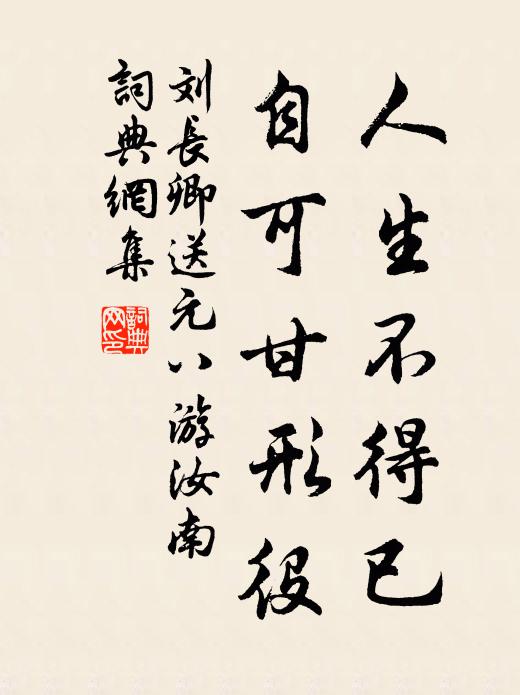 人生不得已
自可甘形役
刘長卿送元八游汝南
詞典網集
詞典网印